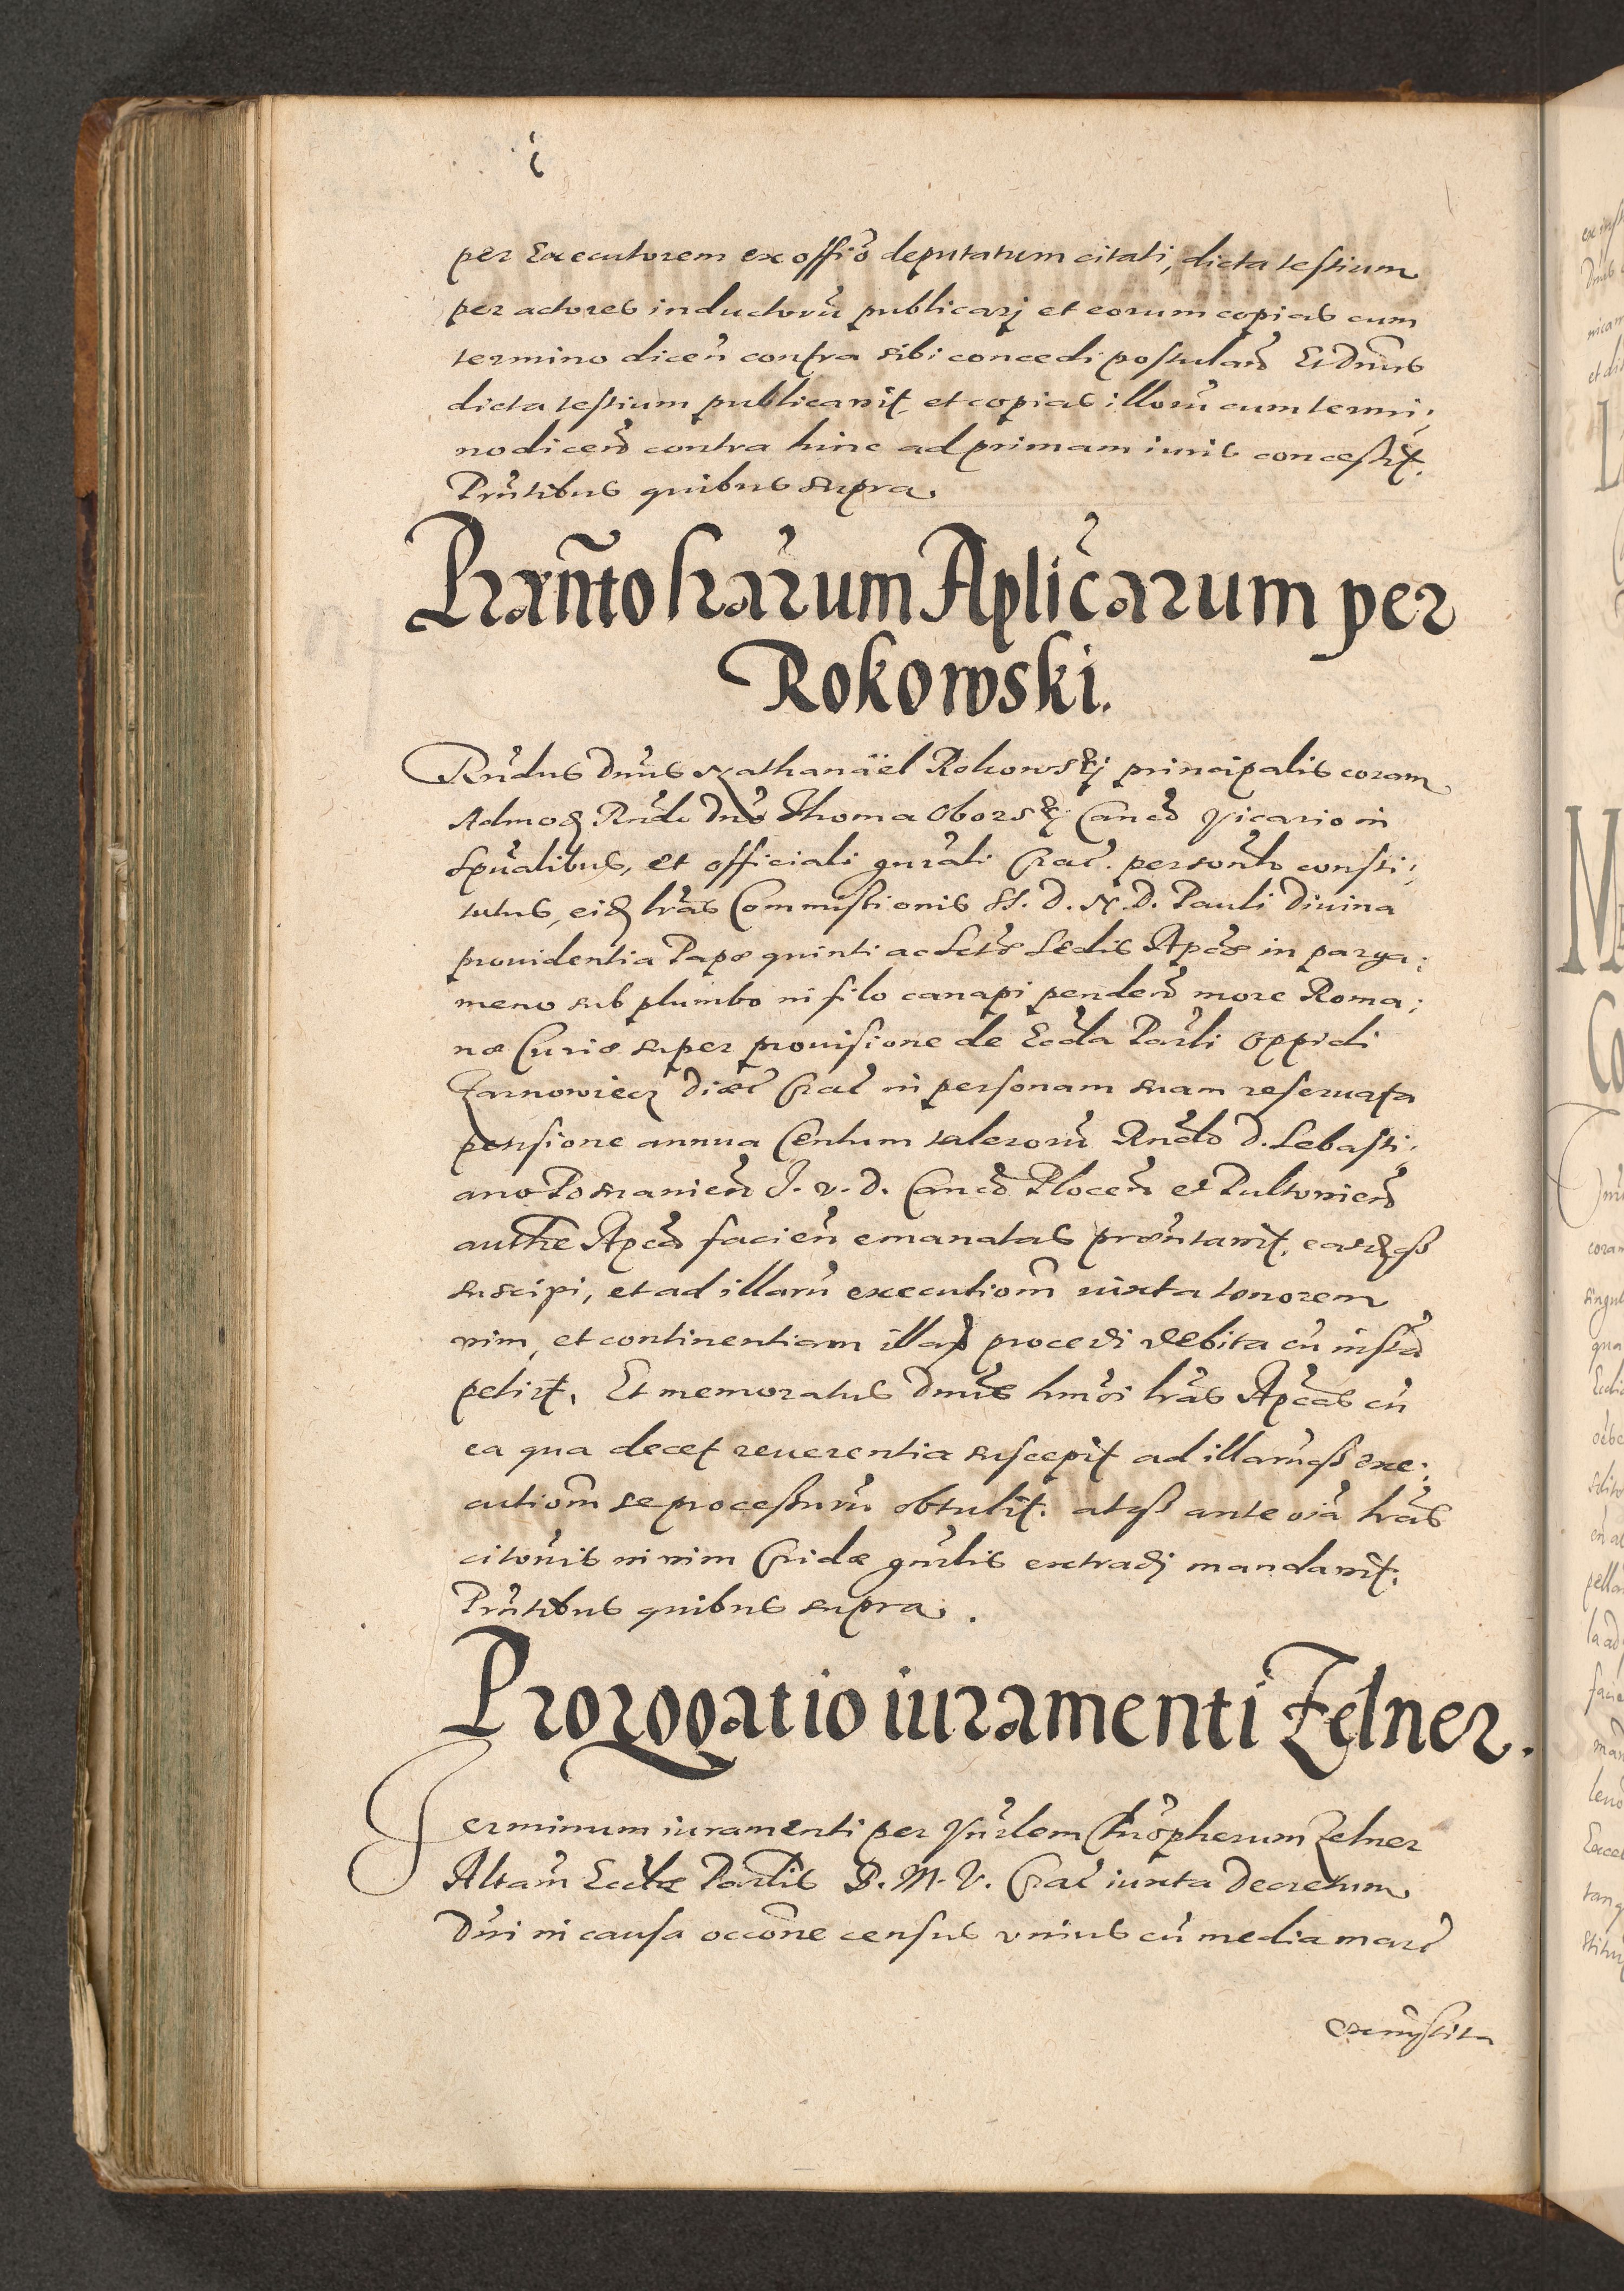 per Executorem ex offỉo deputatum citati, dicta testium
per actores inductorũ publicarj et eorum copias cum
termino dicen̄ contra sibi concedi postulan̄ Et Dn̄us
dicta testium publicauit, et copias illorũ cum termi:
no dicen̄ contra hinc ad primam iuris concessit.
Prn̄tibus quibus supra.
Præn̄to lrārum Aplicarum per
Rokowski.
Rn̄dus Dn̄us Nathanäel Rokowskj principalis coram
Admoꝫ Rn̄do Dn̄o Thoma Oborskj Can̄co Vicario in
Spūalibus, et officiali gnr̄ali Crac̄. personlr̄ consti:
tutus, eiꝫ lrās Commissionis SS. D. N. D. Pauli Diuina
prouidentia Papæ quinti ac Sctǣ Sedis Apcǣ in parga:
meno sub plumbo in filo canapi penden̄ more Roma:
næ Curiæ super prouisione de Eccl̄a Parl̄i Oppidi
Zarnowiecz Diæc̄ Crac̄ in personam suam reseruata
pensione annua Centum talerorũ Rn̄do D. Sebasti:
ano Posnanien̄ J. V. D. Can̄co Plocen̄ et Pultouien̄
authe Apcā facien̄ emanatas præn̄tauit, easꝫqꝫ
suscipi, et ad illarũ executiōm iuxta tenorem
uim, et continentiam illaꝝ procedi debita cū instā
petijt. Et memoratus Dn̄us hmōi lrās Apcās cū
ea qua decet reuerentia suscepit ad illarumqꝫ exe:
cutiōm se processurũ obtulit. atqꝫ ante oīa lrās
citōnis in uim Cridæ gnr̄lis extradj mandauit.
Prn̄tibus quibus supra.
Prorogatio iuramenti Zelner.
Terminum iuramenti per Vnr̄lem Chrōpherum Zelner
Altarm̄ Eccl̄æ Parl̄is B. M. V. Crac̄ iuxta Decretum
Dn̄i in causa occōne census vnius cū media marc̄